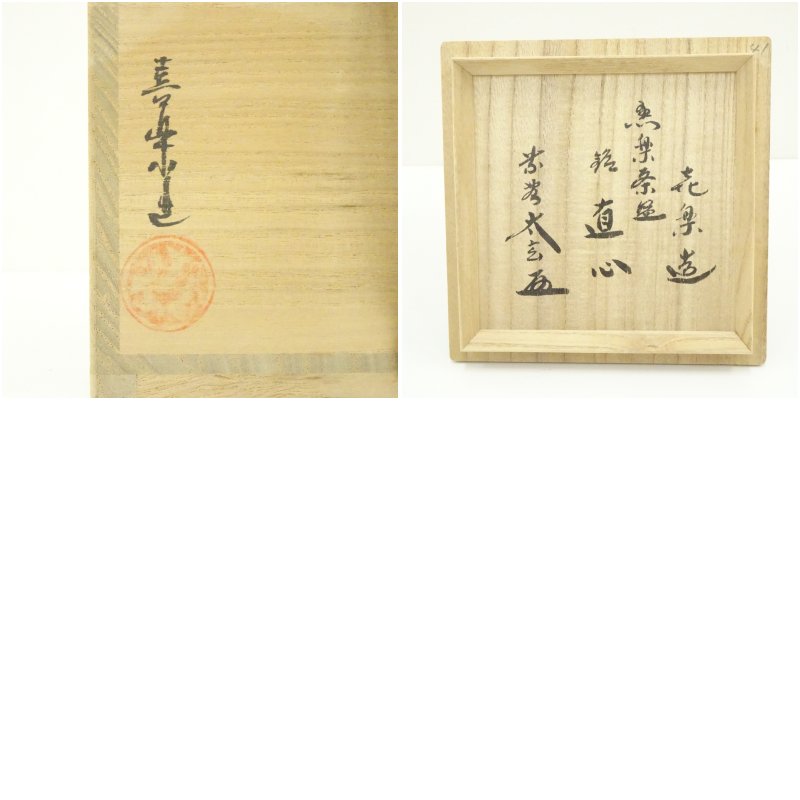 喜楽造
喜楽造
黒楽茶碗
銘 直心
紫野太玄
41